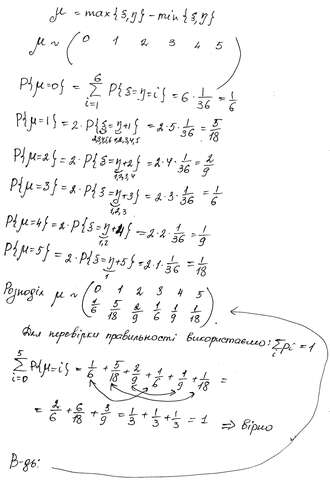 μ = max{ξ,η} - min{ξ,η}
μ ~ ( 0 1 2 3 4 5 )
P{μ=0} = ∑_{i=1}^{6} P{ξ=η=i} = 6·1/36 = 1/6
P{μ=1} = 2·P{ξ=η+1} = 2·5·1/36 = 5/18
P{μ=2} = 2·P{ξ=η+2} = 2·4·1/36 = 2/9
1,2,3,4
P{μ=3} = 2·P{ξ=η+3} = 2·3·1/36 = 1/6
1,2,3
P{μ=4} = 2·P{ξ=η+4} = 2·2·1/36 = 1/9
1,2
P{μ=5} = 2·P{ξ=η+5} = 2·1·1/36 = 1/18
1
Розподіл μ ~ ( 0 1 2 3 4 5
1/6 5/18 2/9 1/6 1/9 1/18 ).
Для перевірки правильності використаємо: ∑pi = 1
∑_{i=0}^{5} P{μ=i} = 1/6 + 5/18 + 2/9 + 1/6 + 1/9 + 1/18 =
= 2/6 + 6/18 + 3/9 = 1/3 + 1/3 + 1/3 = 1 ⇒ вірно
В-дь: